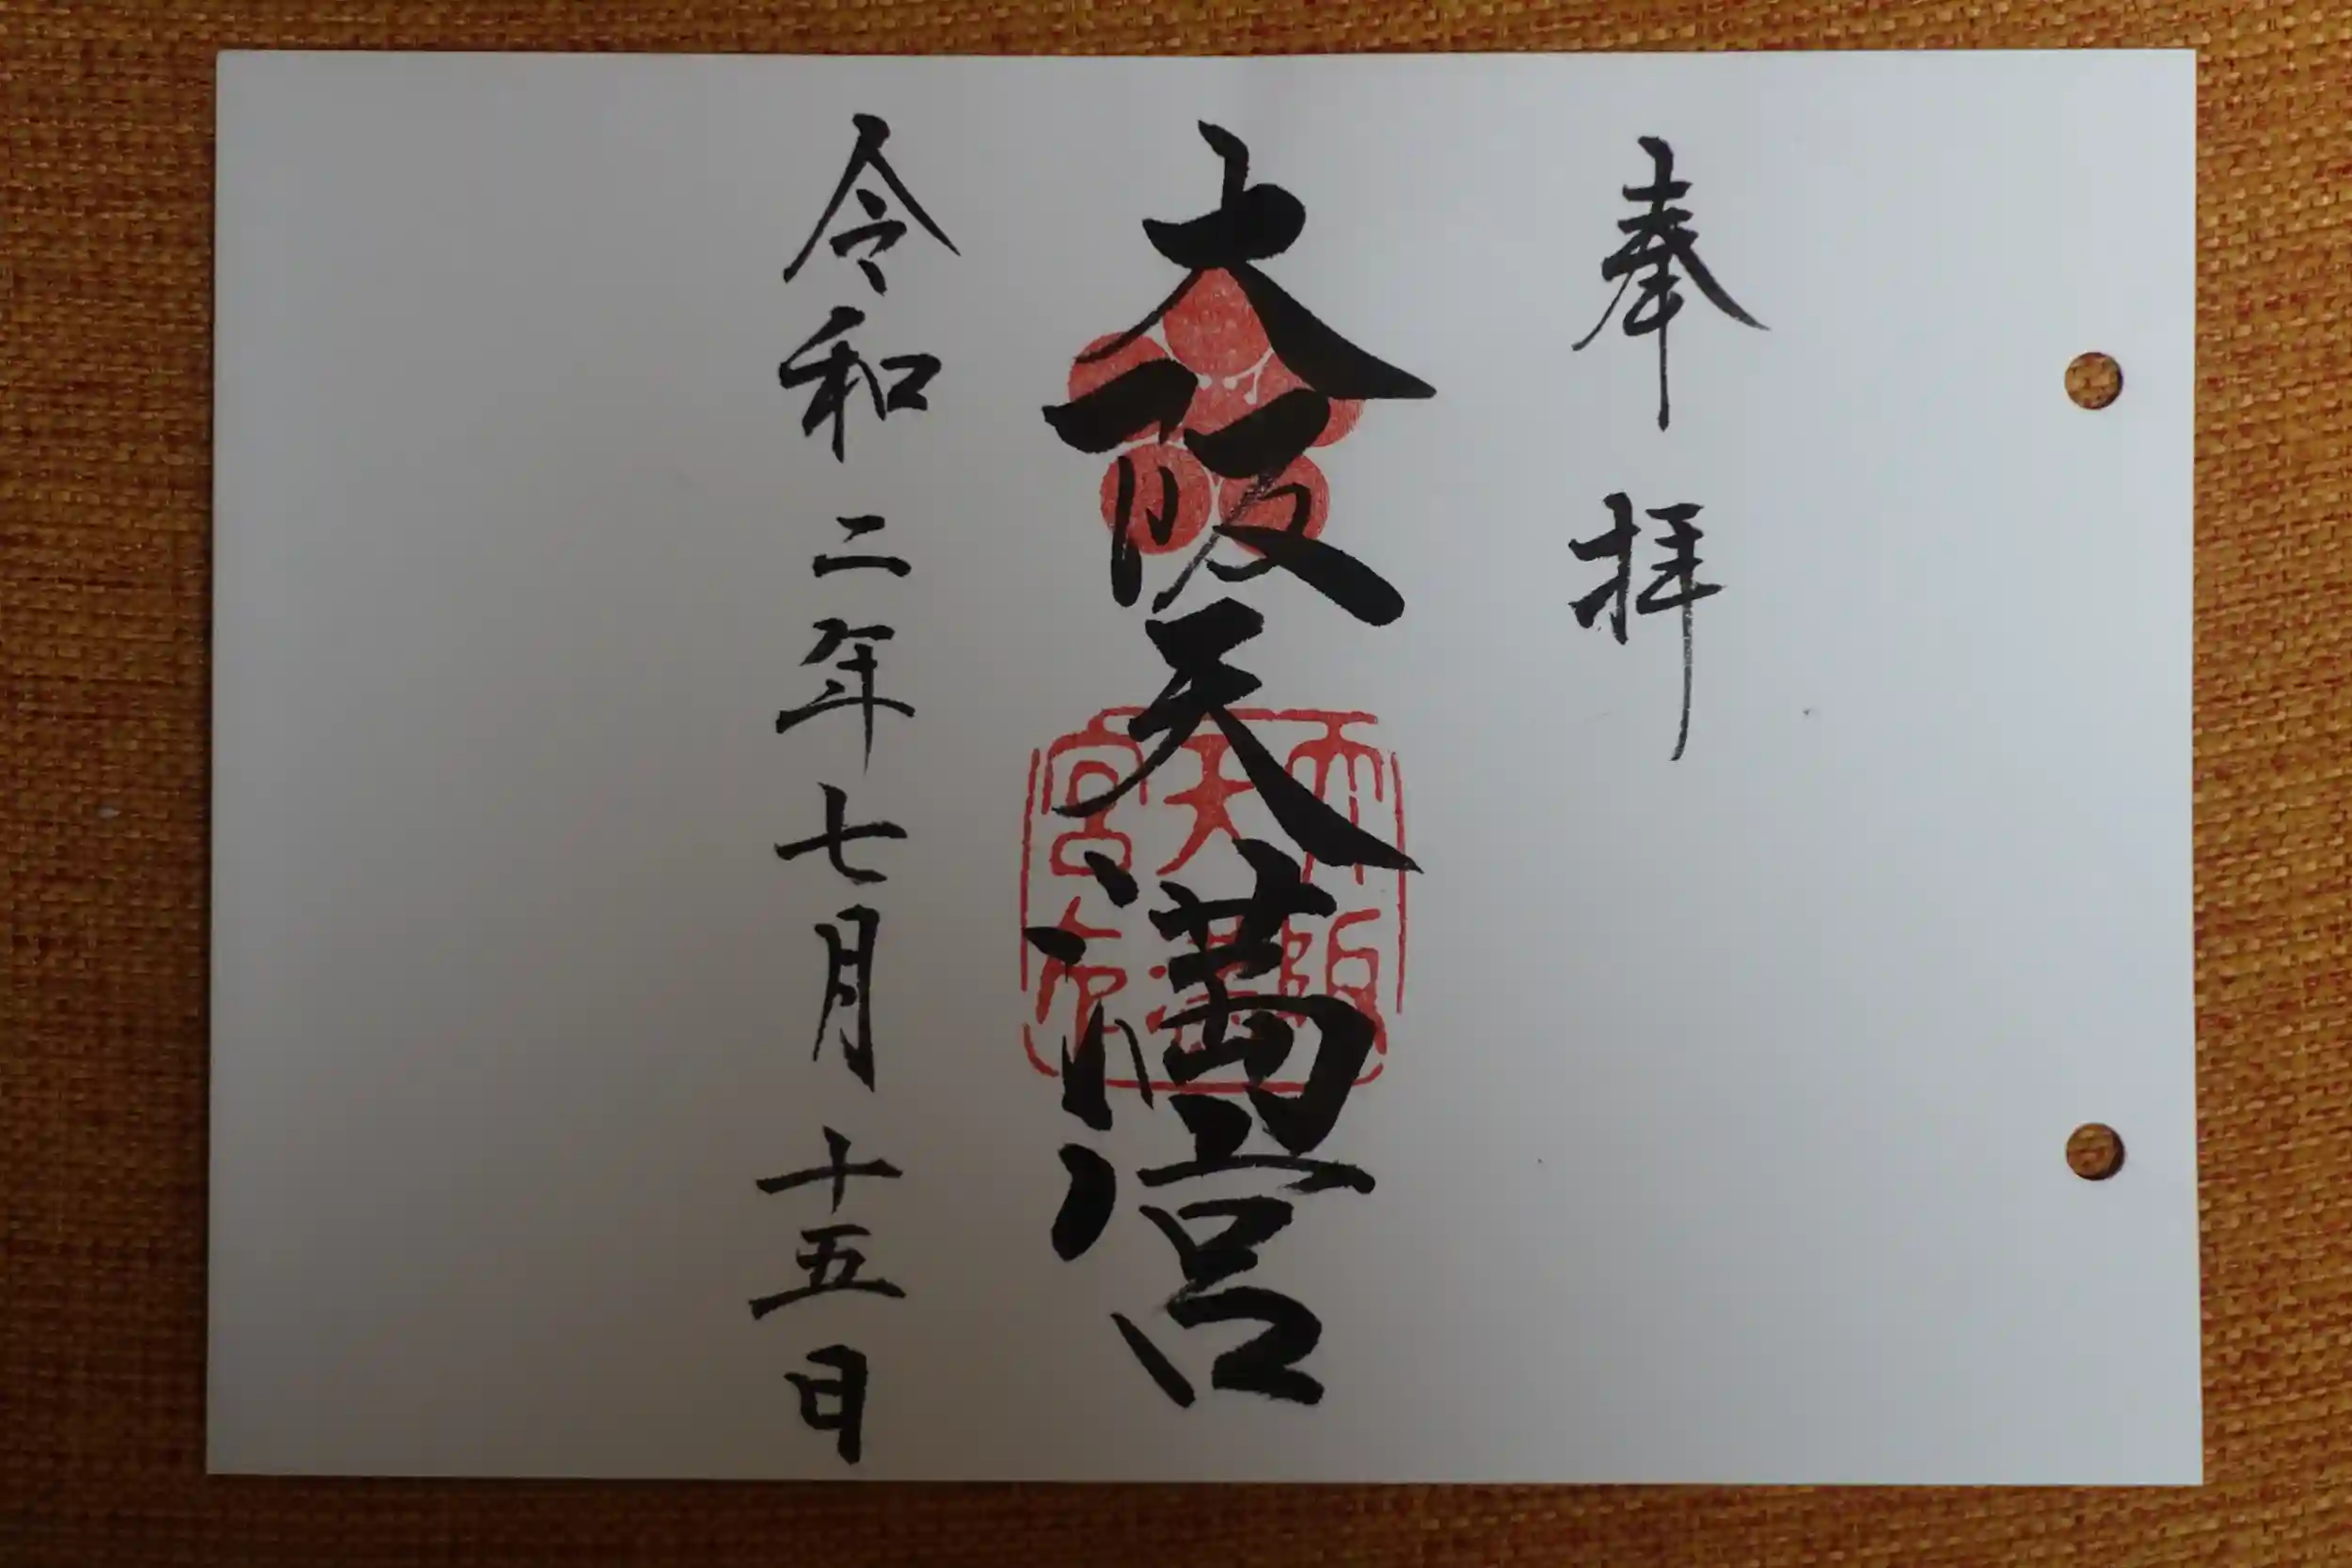 奉拝
大阪天満宮
大阪
天満
宮印
令和二年七月十五日